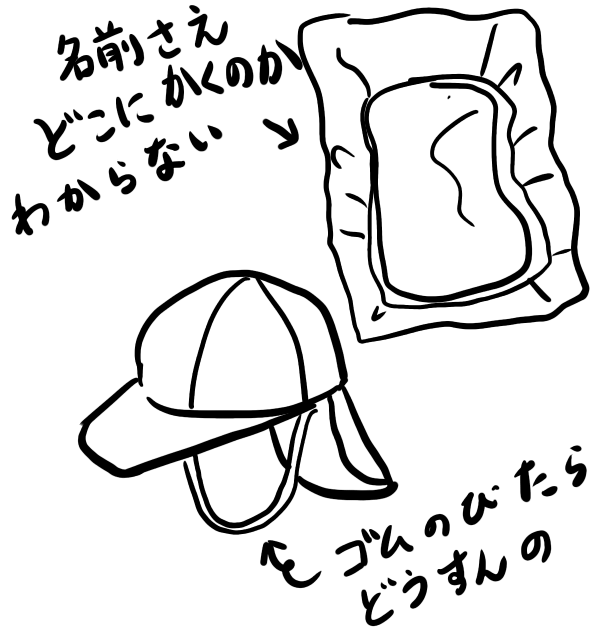 名前さえ
どこにかくのか
わからない
ゴムのびたら
どうすんの